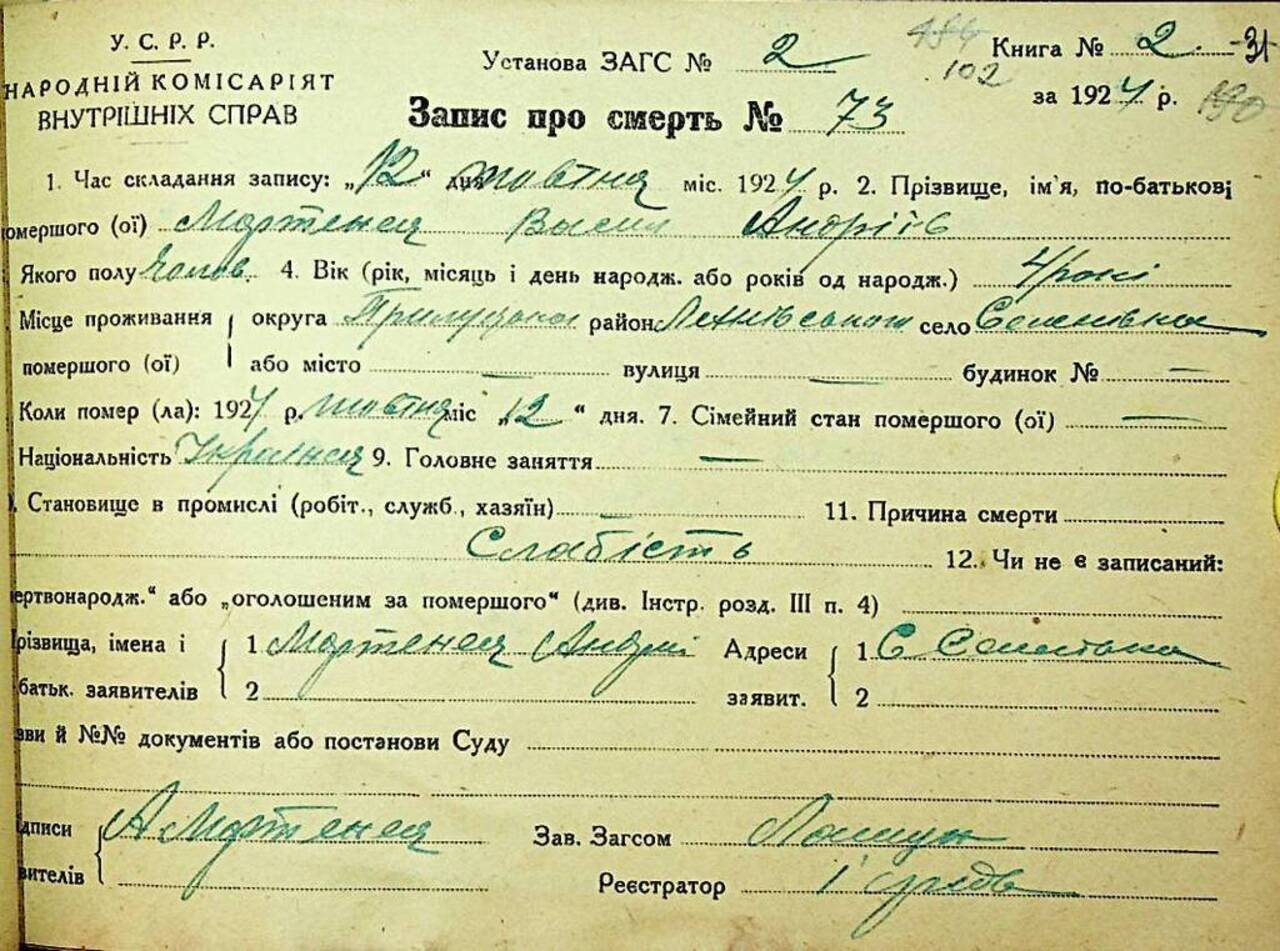 У. С. Р. Р.
НАРОДНІЙ КОМІСАРІЯТ
ВНУТРІШНІХ СПРАВ
Установа ЗАГС № 2
Книга № 2 31
102
за 1924 р. 190
Запис про смерть № 73
1. Час складання запису: „12“ дня жовтня міс. 1924 р. 2. Прізвище, ім'я, по-батькові
омершого (ої) Мартеня Васил Андріїв
Якого полу Чолов. 4. Вік (рік, місяць і день народж. або років од народж.) 4 рокі
Місце проживання помершого (ої) округа Прилуцька район село
або місто — вулиця — будинок № —
Коли помер (ла): 1924 р. жовтня міс „12“ дня. 7. Сімейний стан помершого (ої) —
Національність 9. Головне заняття —
Становище в промислі (робіт., служб., хазяїн) — 11. Причина смерти
Слабість 12. Чи не є записаний:
ертвонародж.“ або „оголошеним за помершого“ (див. Інстр. розд. III п. 4)
різвища, імена і батьк. заявителів 1 Мартеня Андрій Адреси заявит. 1 С
2 2
зви й №№ документів або постанови Суду
дписи вителів А Мартеня Зав. Загсом
Реєстратор